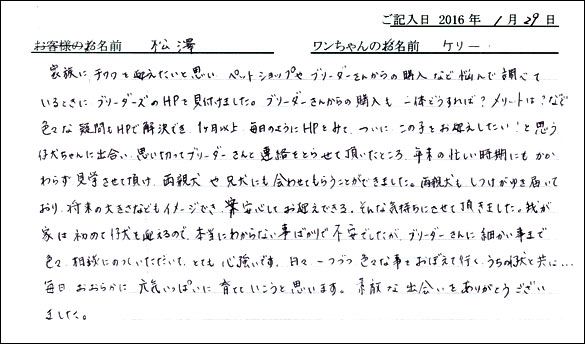 ご記入日 2016年 1月 29日
お客様のお名前 松澤 ワンちゃんのお名前 ケリー
家族に、チワワを迎えたいと思い、ペットショップや ブリーダーさんからの購入など悩んで調べて
いるときに ブリーダーズのHPを見付けました。ブリーダーさんからの購入も 一体どうすれば？メリットは？など
色々な疑問もHPで解決でき、1ヶ月以上、毎日のようにHPをみて、ついに、この子をお迎えしたい！と思う
仔犬ちゃんに出会い、思い切ってブリーダーさんと連絡をとらせて頂いたところ、年末の忙しい時期にもかか
わらず見学させて頂け、両親犬や兄犬にも会わせてもらうことができました。両親犬もしつけがゆき届いて
おり、将来の大きさなどもイメージでき、安心してお迎えできる、そんな気持ちにさせて頂きました。我が
家は初めて仔犬を迎えるので、本当にわからない事ばかりで不安でしたが、ブリーダーさんに細かい事まで
色々、相談にのっていただいて、とても心強いです。日々一つづつ色々な事をおぼえて行く、うちの伏と共に…
毎日おおらかに元気いっぱいに育てていこうと思います。素敵な出会いをありがとうござい
ました。